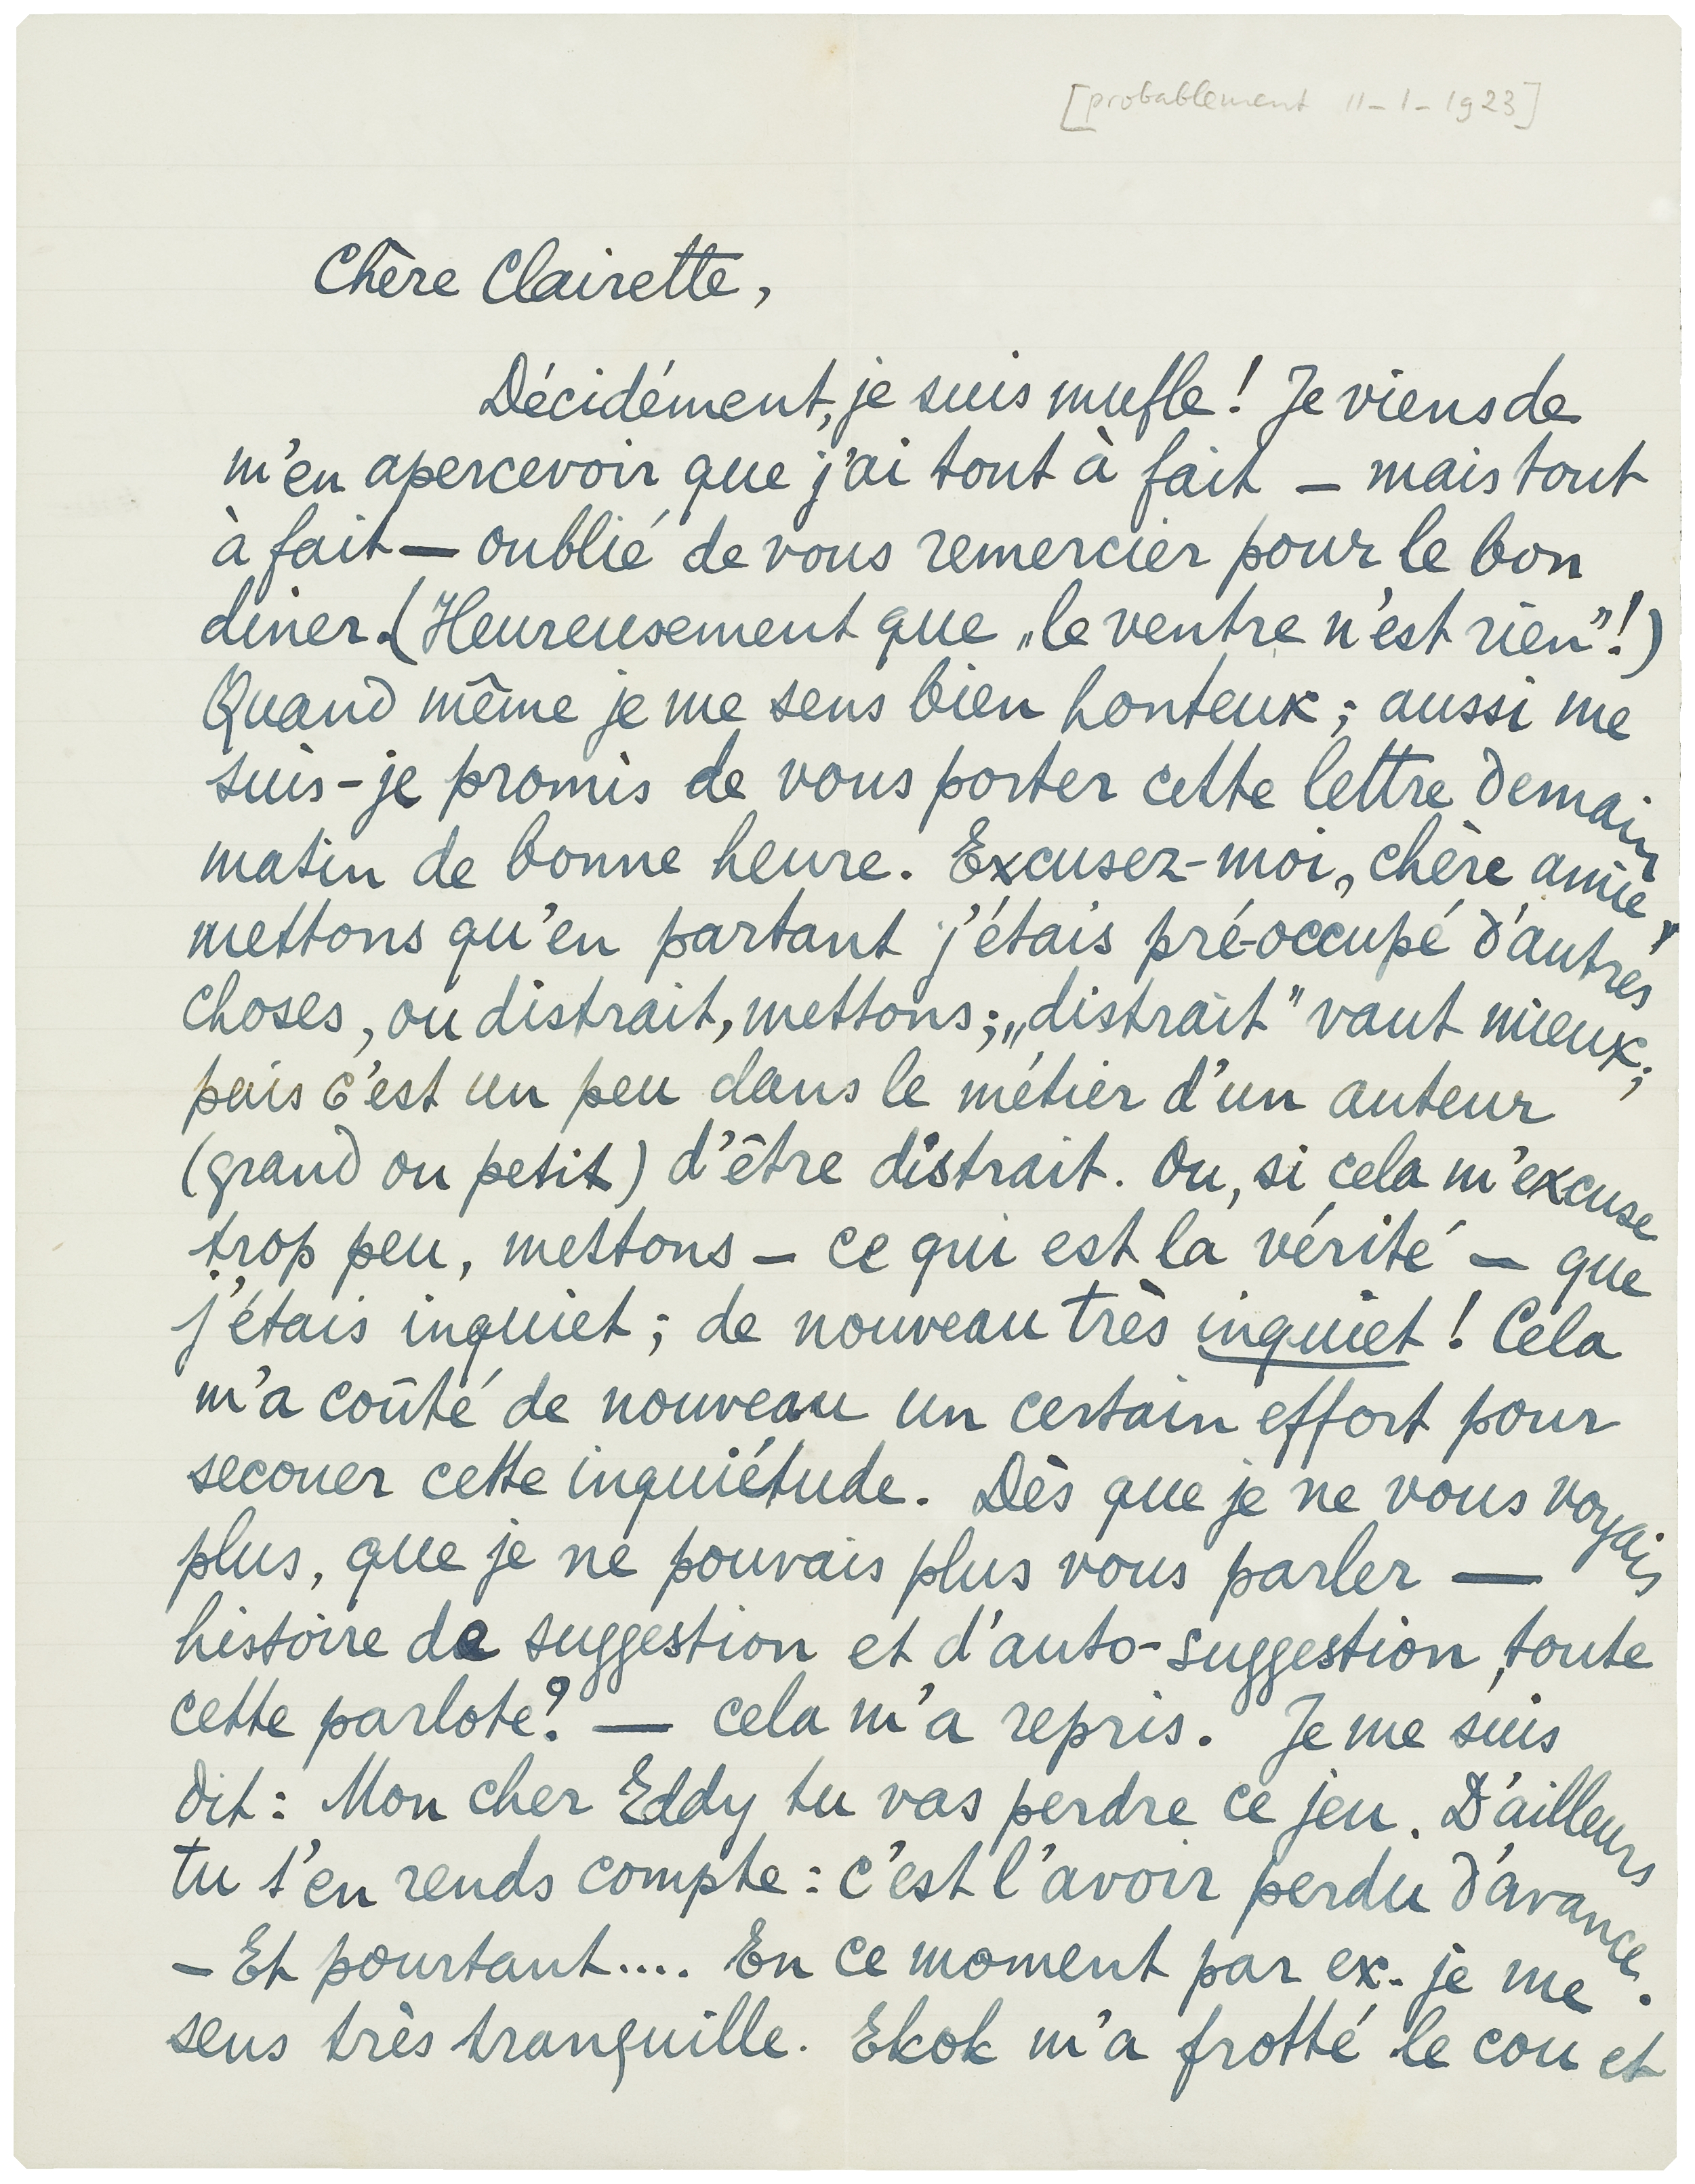 [probablement 11-1-1923]
Chère Clairette,
Décidément, je suis mufle! Je viens de
m'en apercevoir que j'ai tout à fait — mais tout
à fait — oublié de vous remercier pour le bon
diner. (Heureusement que „le ventre n'est rien"!)
Quand même je me sens bien honteux; aussi me
suis-je promis de vous porter cette lettre demain
matin de bonne heure. Excusez-moi, chère amie,
mettons qu'en partant j'étais pré-occupé d'autres
choses, ou distrait, mettons; „distrait" vaut mieux;
puis c'est un peu dans le métier d'un auteur
(grand ou petit) d'être distrait. Ou, si cela m'excuse
trop peu, mettons — ce qui est la vérité — que
j'étais inquiet; de nouveau très inquiet! Cela
m'a coûté de nouveau un certain effort pour
secouer cette inquiétude. Dès que je ne vous voyais
plus, que je ne pouvais plus vous parler —
histoire de suggestion et d'auto-suggestion, toute
cette parlote? — cela m'a repris. Je me suis
dit: Mon cher Eddy tu vas perdre ce jeu. D'ailleurs
tu t'en rends compte: c'est l'avoir perdu d'avance.
— Et pourtant.... En ce moment par ex. je me
sens très tranquille. Ekok m'a frotté le cou et